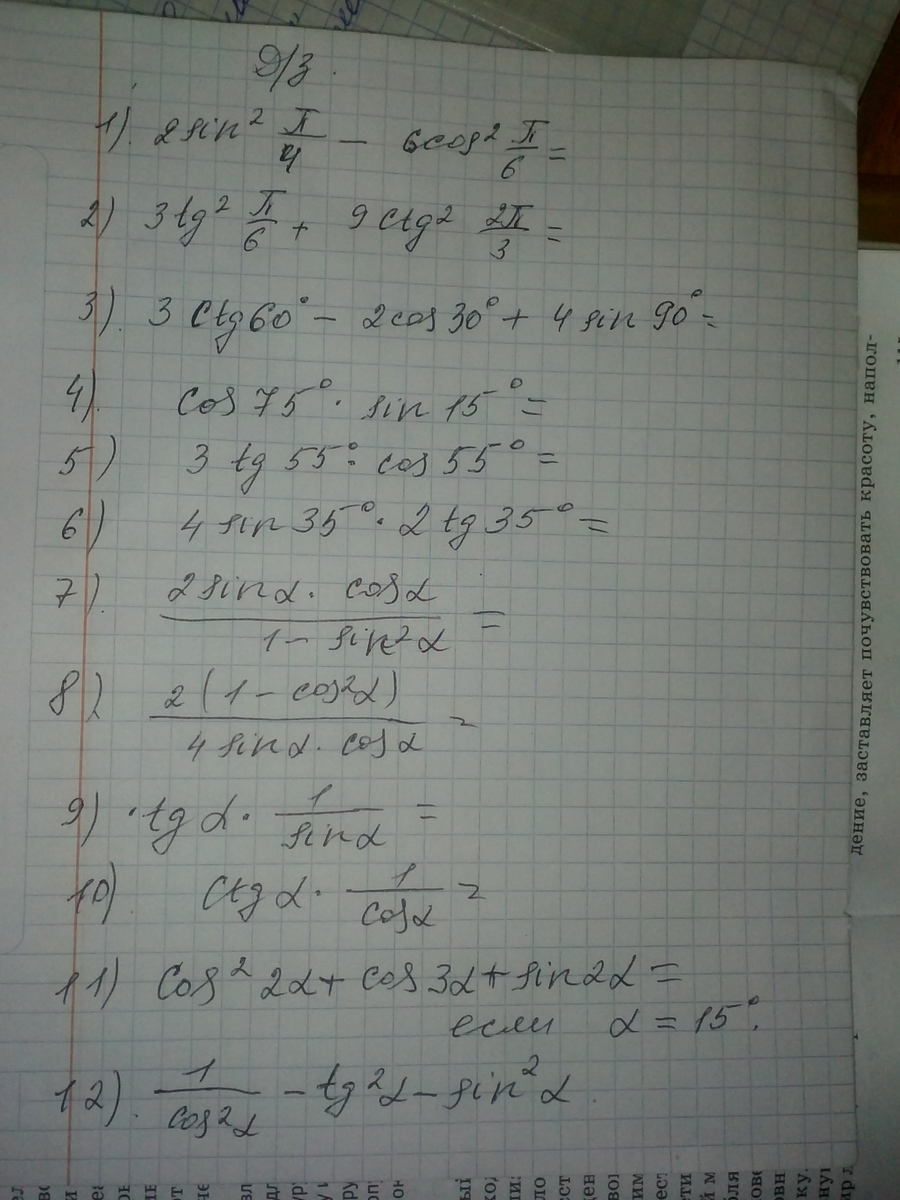 Д/З.
1). 2 sin² π/4 − 6cos² π/6 =
2) 3 tg² π/6 + 9 ctg² 2π/3 =
3). 3 Ctg60° − 2cos30° + 4 sin 90° =
4). cos 75° · sin 15° =
5) 3 tg 55° · cos 55° =
6) 4 sin 35° · 2 tg 35° =
7). 2sinα · cosα
1 − sin²α =
8) 2 (1 − cos²α)
4 sinα · cosα =
9) · tg α · 1/sinα =
10) Ctg α · 1/cosα =
11) Cos² 2α + cos 3α + sin2α =
если α = 15°.
12). 1/cos²α − tg²α − sin²α.
дение, заставляет почувствовать красоту, напол-